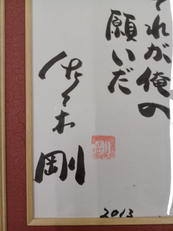 それが俺の
願いだ
佐々木剛
剛
2013